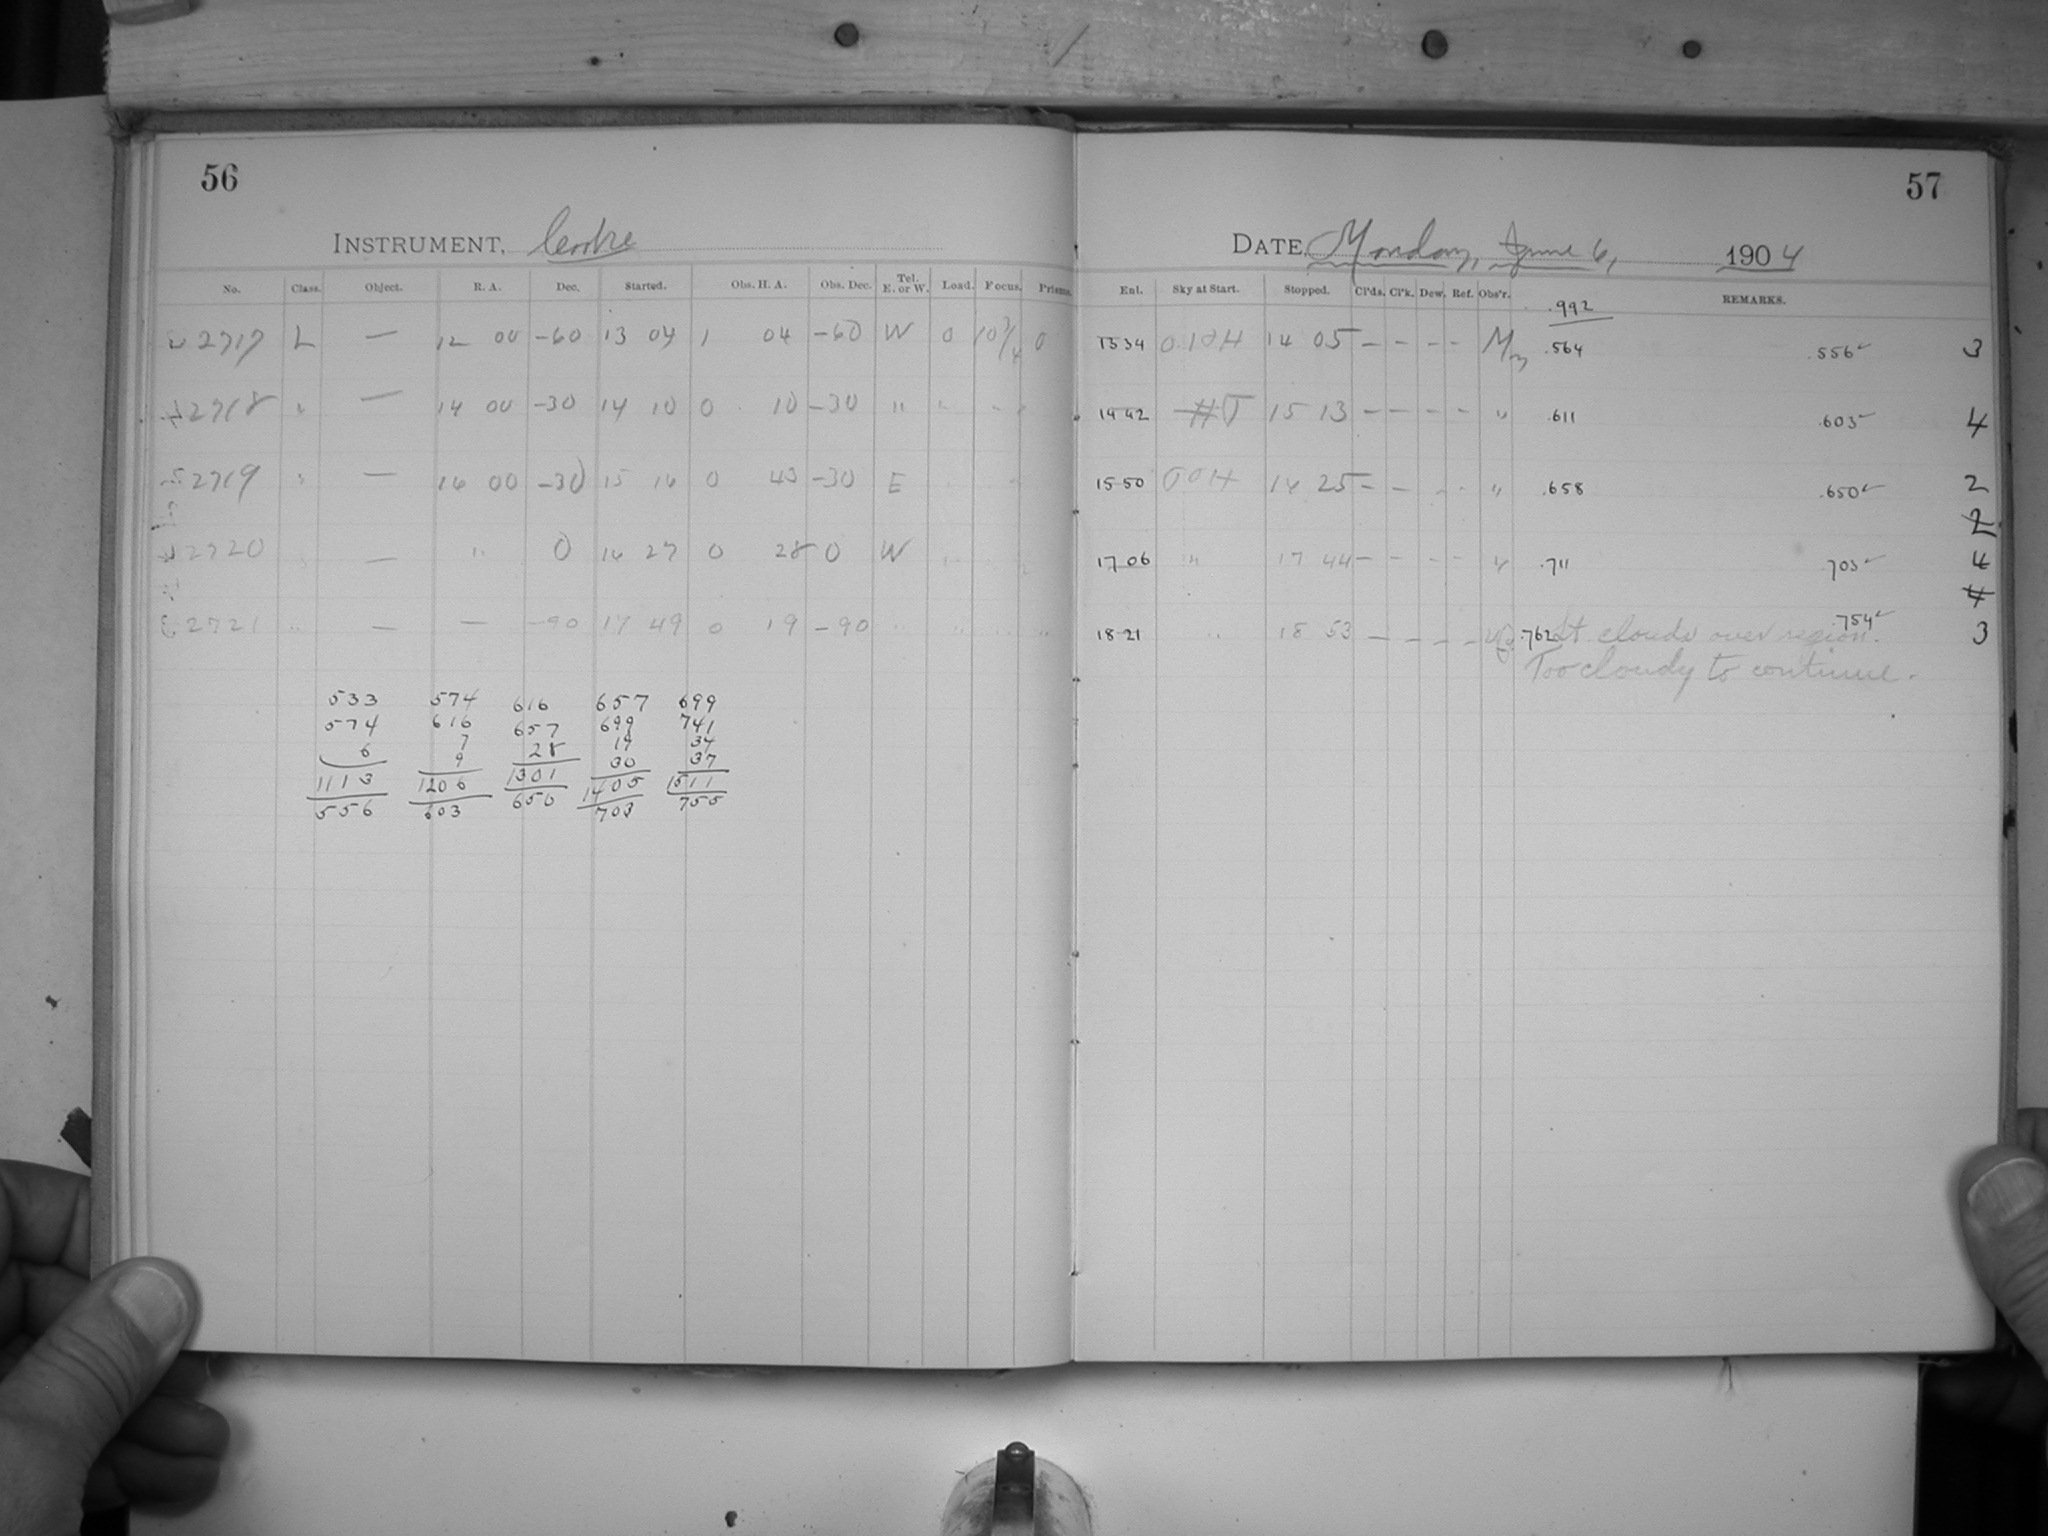 56
57
INSTRUMENT, Cooke
DATE, Monday, June 6, 1904
No. Class. Object. R. A. Dec. Started. Obs. H. A. Obs. Dec. Tel. E. or W. Load. Focus. Prisms.
Enl. Sky at Start. Stopped. Cl'ds. Cl'k. Dew. Ref. Obs'r. REMARKS.
.992
2717 L — 12 00 -60 13 04 1 04 -60 W 0 10 3/4 0 13 34 14 05 — — — — .564 .556 3
2718 " — 14 00 -30 14 10 0 10 -30 " " 14 42 15 13 — — — — " .611 .603 4
2719 " — 16 00 -30 15 16 0 43 -30 E 15 50 16 25 — — — — " .658 .650 2
2
2720 — " 0 16 27 0 28 0 W 17 06 " 17 44 — — — — " .711 .703 4
4
2721 " — — -90 17 49 0 19 -90 " " " " " 18 21 " 18 53 — — — — .762 Lt. clouds over region. .754 3
Too cloudy to continue.
533 574 616 657 699
574 616 657 699 741
6 7 28 19 34
9 30 37
1113 1206 1301 1405 1511
556 603 650 703 755